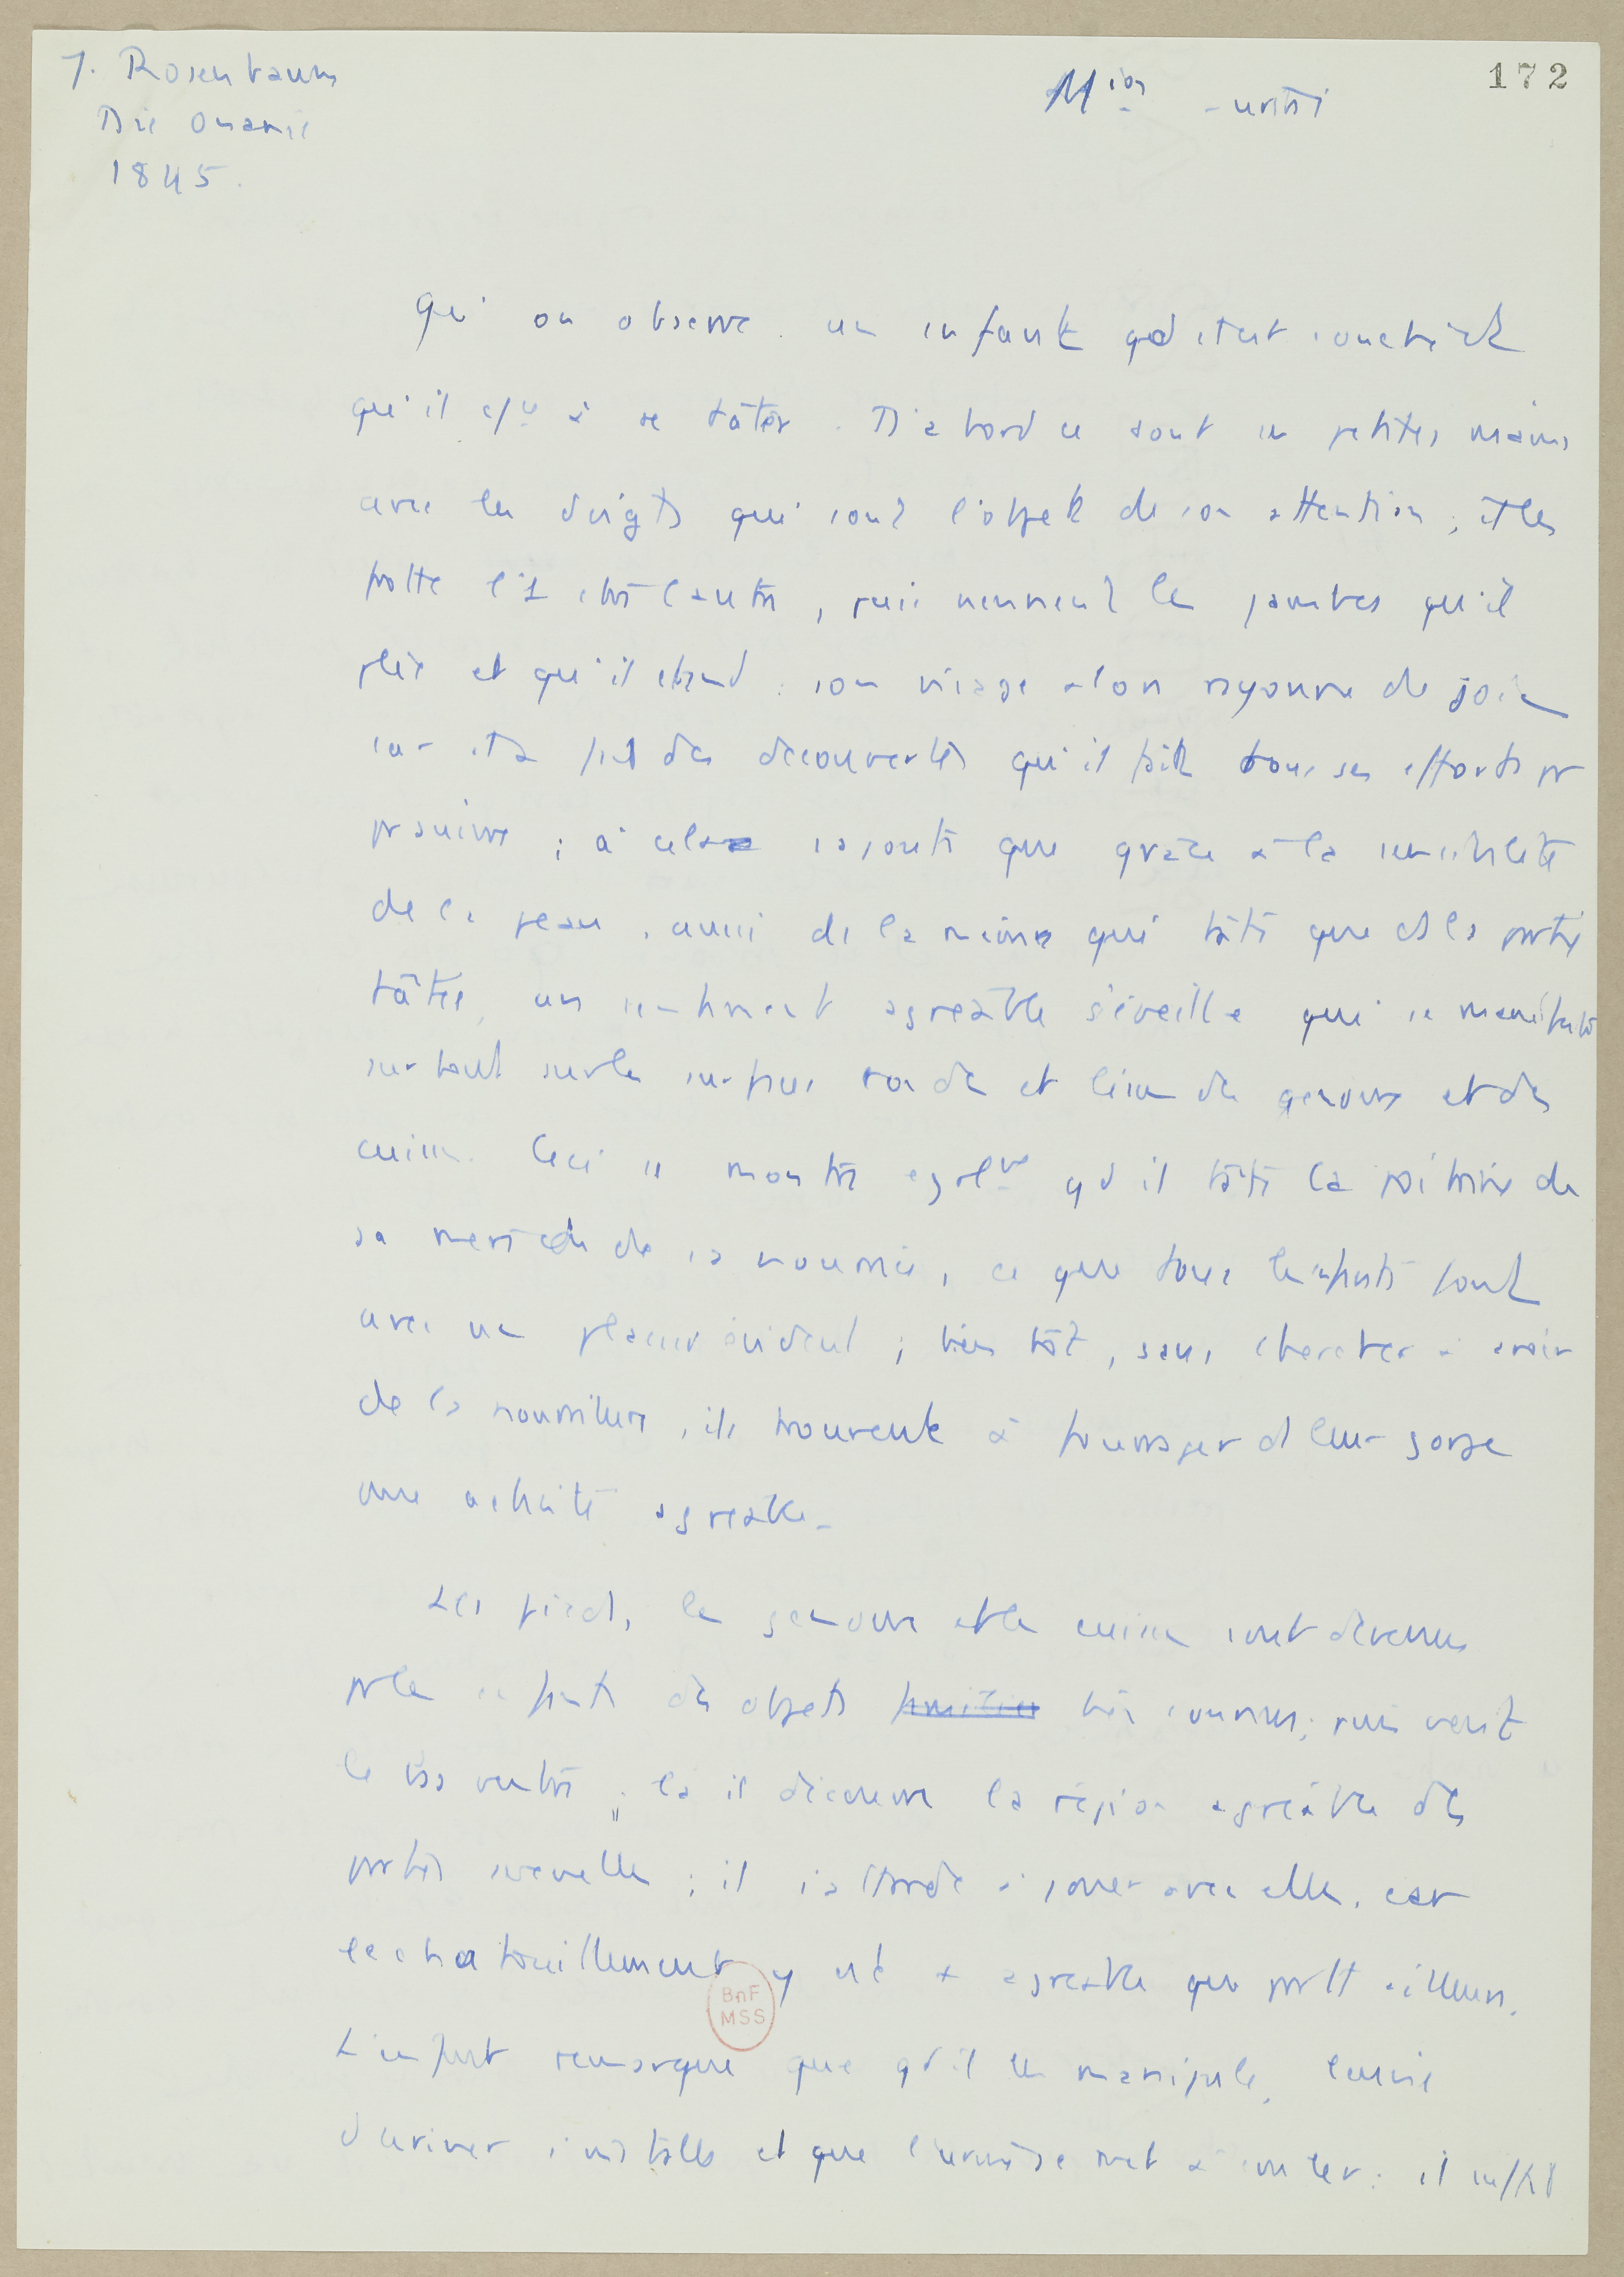 J. Rosenbaum
Die Onanie
1845.
172
Qu'on observe un enfant qd il est couché
qu'il à se tâter. D'abord ce sont ses petites mains
avec les doigts qui sont l'objet de son attention ; il les
frotte l'1 ctre l'autre, puis viennent les jambes qu'il
plie et qu'il étend ; son visage alors rayonne de joie
car il a fait des découvertes qu'il fait tous ses efforts pr
prsuivre ; à cela s'ajoute que grâce à la sensibilité
de la peau, aussi de la main qui tâte que de la partie
tâtée, un sentiment agréable s'éveille qui se manifeste
surtout sur les surfaces rondes et lisses des genoux et des
cuisses. Ceci se montre egalt qd il tâte la poitrine de
sa mère de sa nourrice, ce que tous les enfants font
avec un plaisir évident ; bientôt, sans chercher à avoir
de la nourriture, ils trouvent à fourrager ds leur gorge
une activité agréable.
Les pieds, les genoux et les cuisses sont devenus
pr les enfants des objets très connus ; puis vient
le bas ventre ; là il découvre la région agréable des
parties sexuelles ; il s'attarde à jouer avec elles, car
le chatouillement y est + agréable que prtt ailleurs.
L'enfant remarque que qd il les manipule, l'envie
d'uriner s'installe et que l'urine se met à couler ; il suffit
BnF
MSS